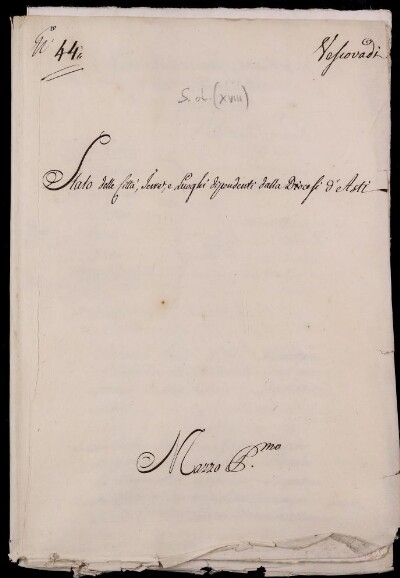 N.º 44.
Vescovadi
S. d. (XVIII)
Stato delle Città, Terre, e Luoghi dipendenti dalla Diocesi d'Asti
Mazzo P.mo